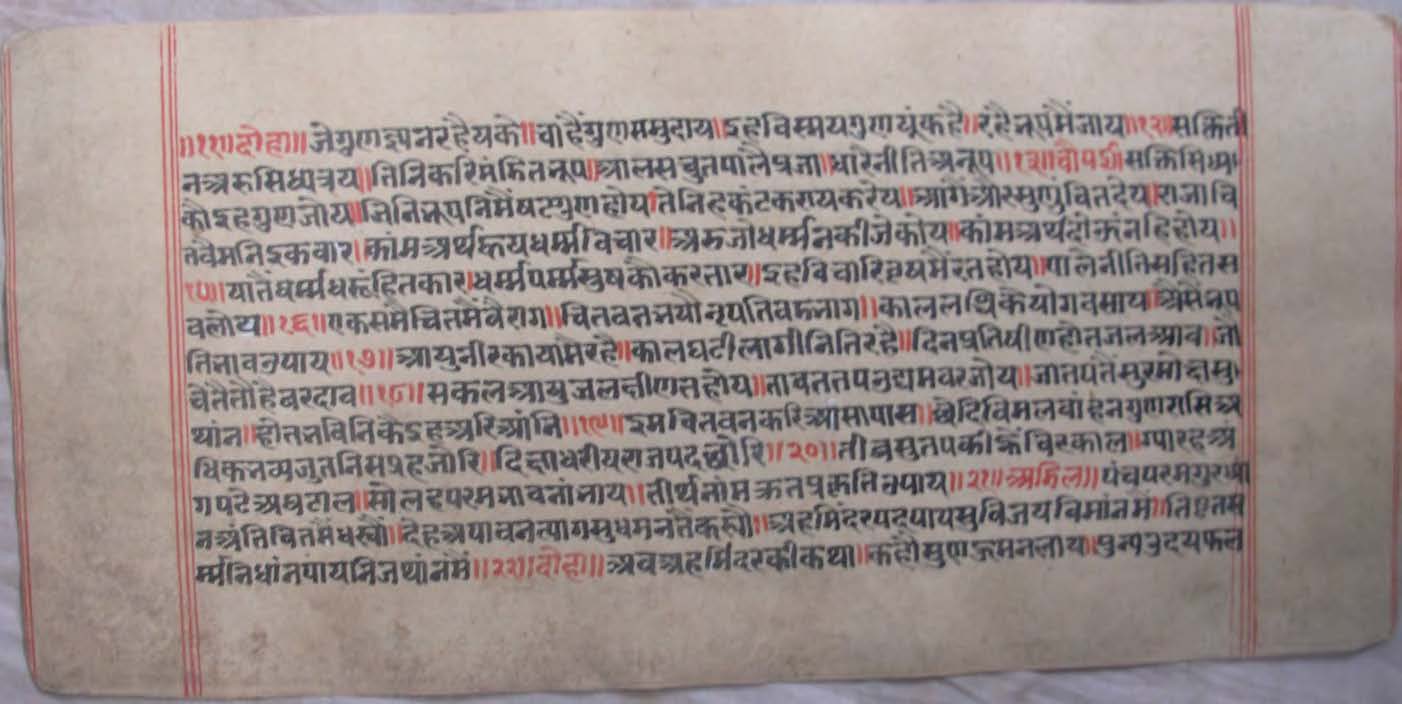 ॥११॥दोहा॥ जेगुण नरहैयको॥वाहैगुणसमुदाय॥इहविस्मयगुण ॥रहैनृपमैंजाय॥१२॥सक्तिती
नअरुसिध्यत्रय॥तिनिकरिमंडितनूप॥आलसचुतपालैप्रजा॥धारैनीतिअनूप॥१३॥चौपई॥सक्तिसिध्य
कौइहगुणजोय॥जिनिनृपनिमैंषटगुणहोय॥तेनिहकंटकरायकरेय॥आगेंऔरसुणुंचितदेय॥राजाचि
तवैमनिइकवार॥कांमअर्थ धर्म्मविचार॥अरुजोधर्म्मनकीजेकोय॥कांमअर्थ नहिहोय॥
यातैंधर्म्म हितकार॥धर्म्मपर्म्मसुषकौकरतार॥इहविचारि मैंरतहोय॥पालैनीतिसहितस
वलोय॥१६॥एकसमैचितमैंवैराग॥चितवतभयौनृपतिवडभाग॥काललब्धिकैयोगवसाय॥ नृप
तिभावउपाय॥१७॥आयुनीरकायामैंरहै॥कालघटीलागीनितिरहै॥दिनप्रतिषीणहोतजलआव॥जौ
चेतैतौंहैवरदाव॥१८॥सकलआयुजलक्षीण होय॥तावततपउद्यमवरजोय॥जातपतैंसुरमोक्षसु
थांन॥होतभविनिकैइह ॥१९॥इमचितवनकरिआसापास॥छेदिविमलवांहनगुणरासिअ
धिकनग्रजुतनिसप्रहजोरि॥दिक्षाधरीयराजपदछोरि॥२०॥तीव्रसुतपकीऊंचिरकाल॥ग्यारहअ
गपढेअघटाल॥सोलहपरमभावनांभाय॥तीर्थनांम प्रकतिउपाय॥२१॥अडिल॥पंचपरमगुरध्या
नअंतिचितमैंधस्यौ॥देहअपावनत्यागसुधमनतै कस्यौ॥अहमिंदरपदपायसुविजयविमांनमैं॥तिष्टतस
र्म्मनिधांनपायनिजथांनमैं॥२२॥दोहा॥अवअहमिंदरकीकथा॥कहौसुणऊमनलाय॥पुन्यउदयफल